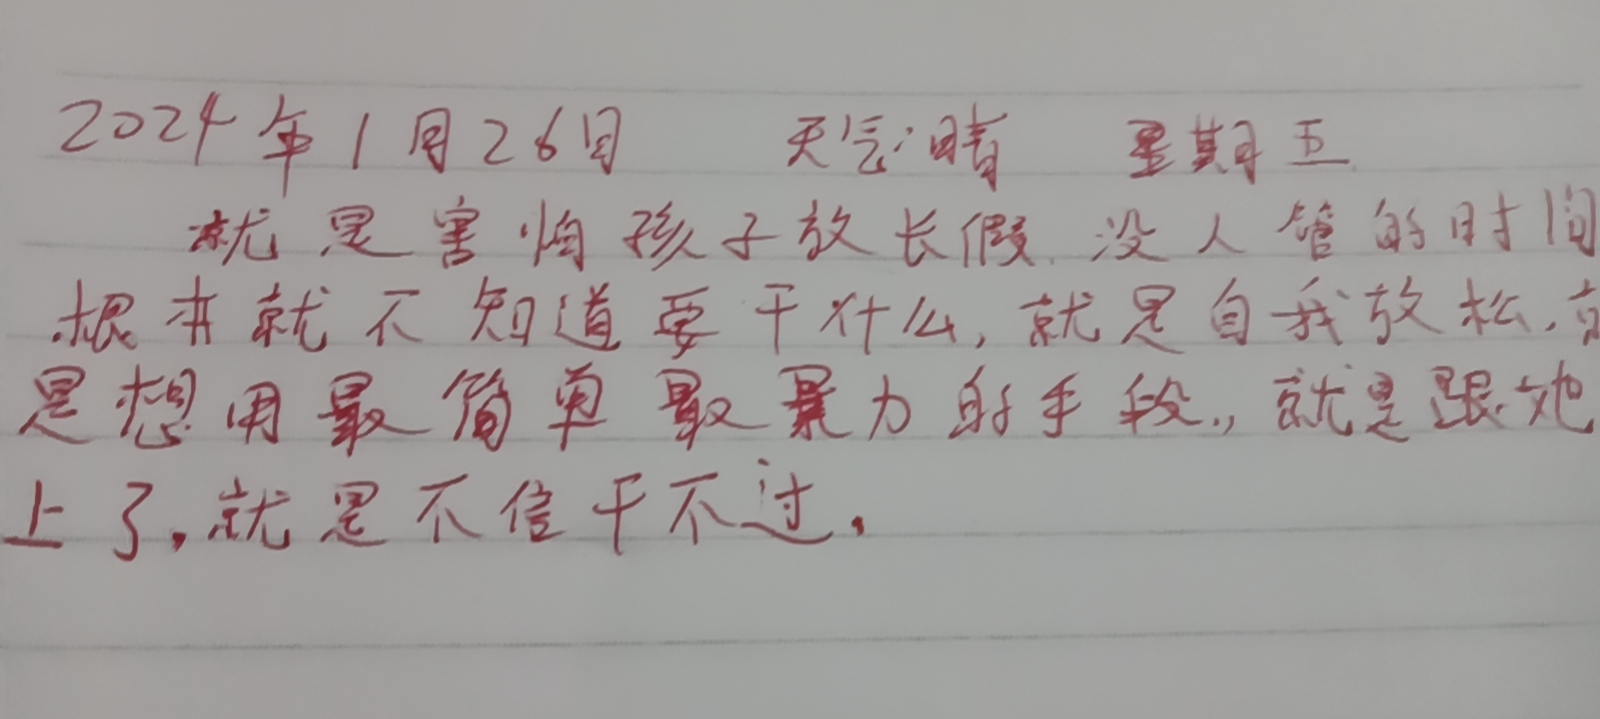 2024年1月26日 天气:晴 星期五
就是害怕孩子放长假,没人管的时间
根本就不知道要干什么,就是自我放松,
是想用最简单最暴力的手段,,就是跟她
上了,就是不信干不过.